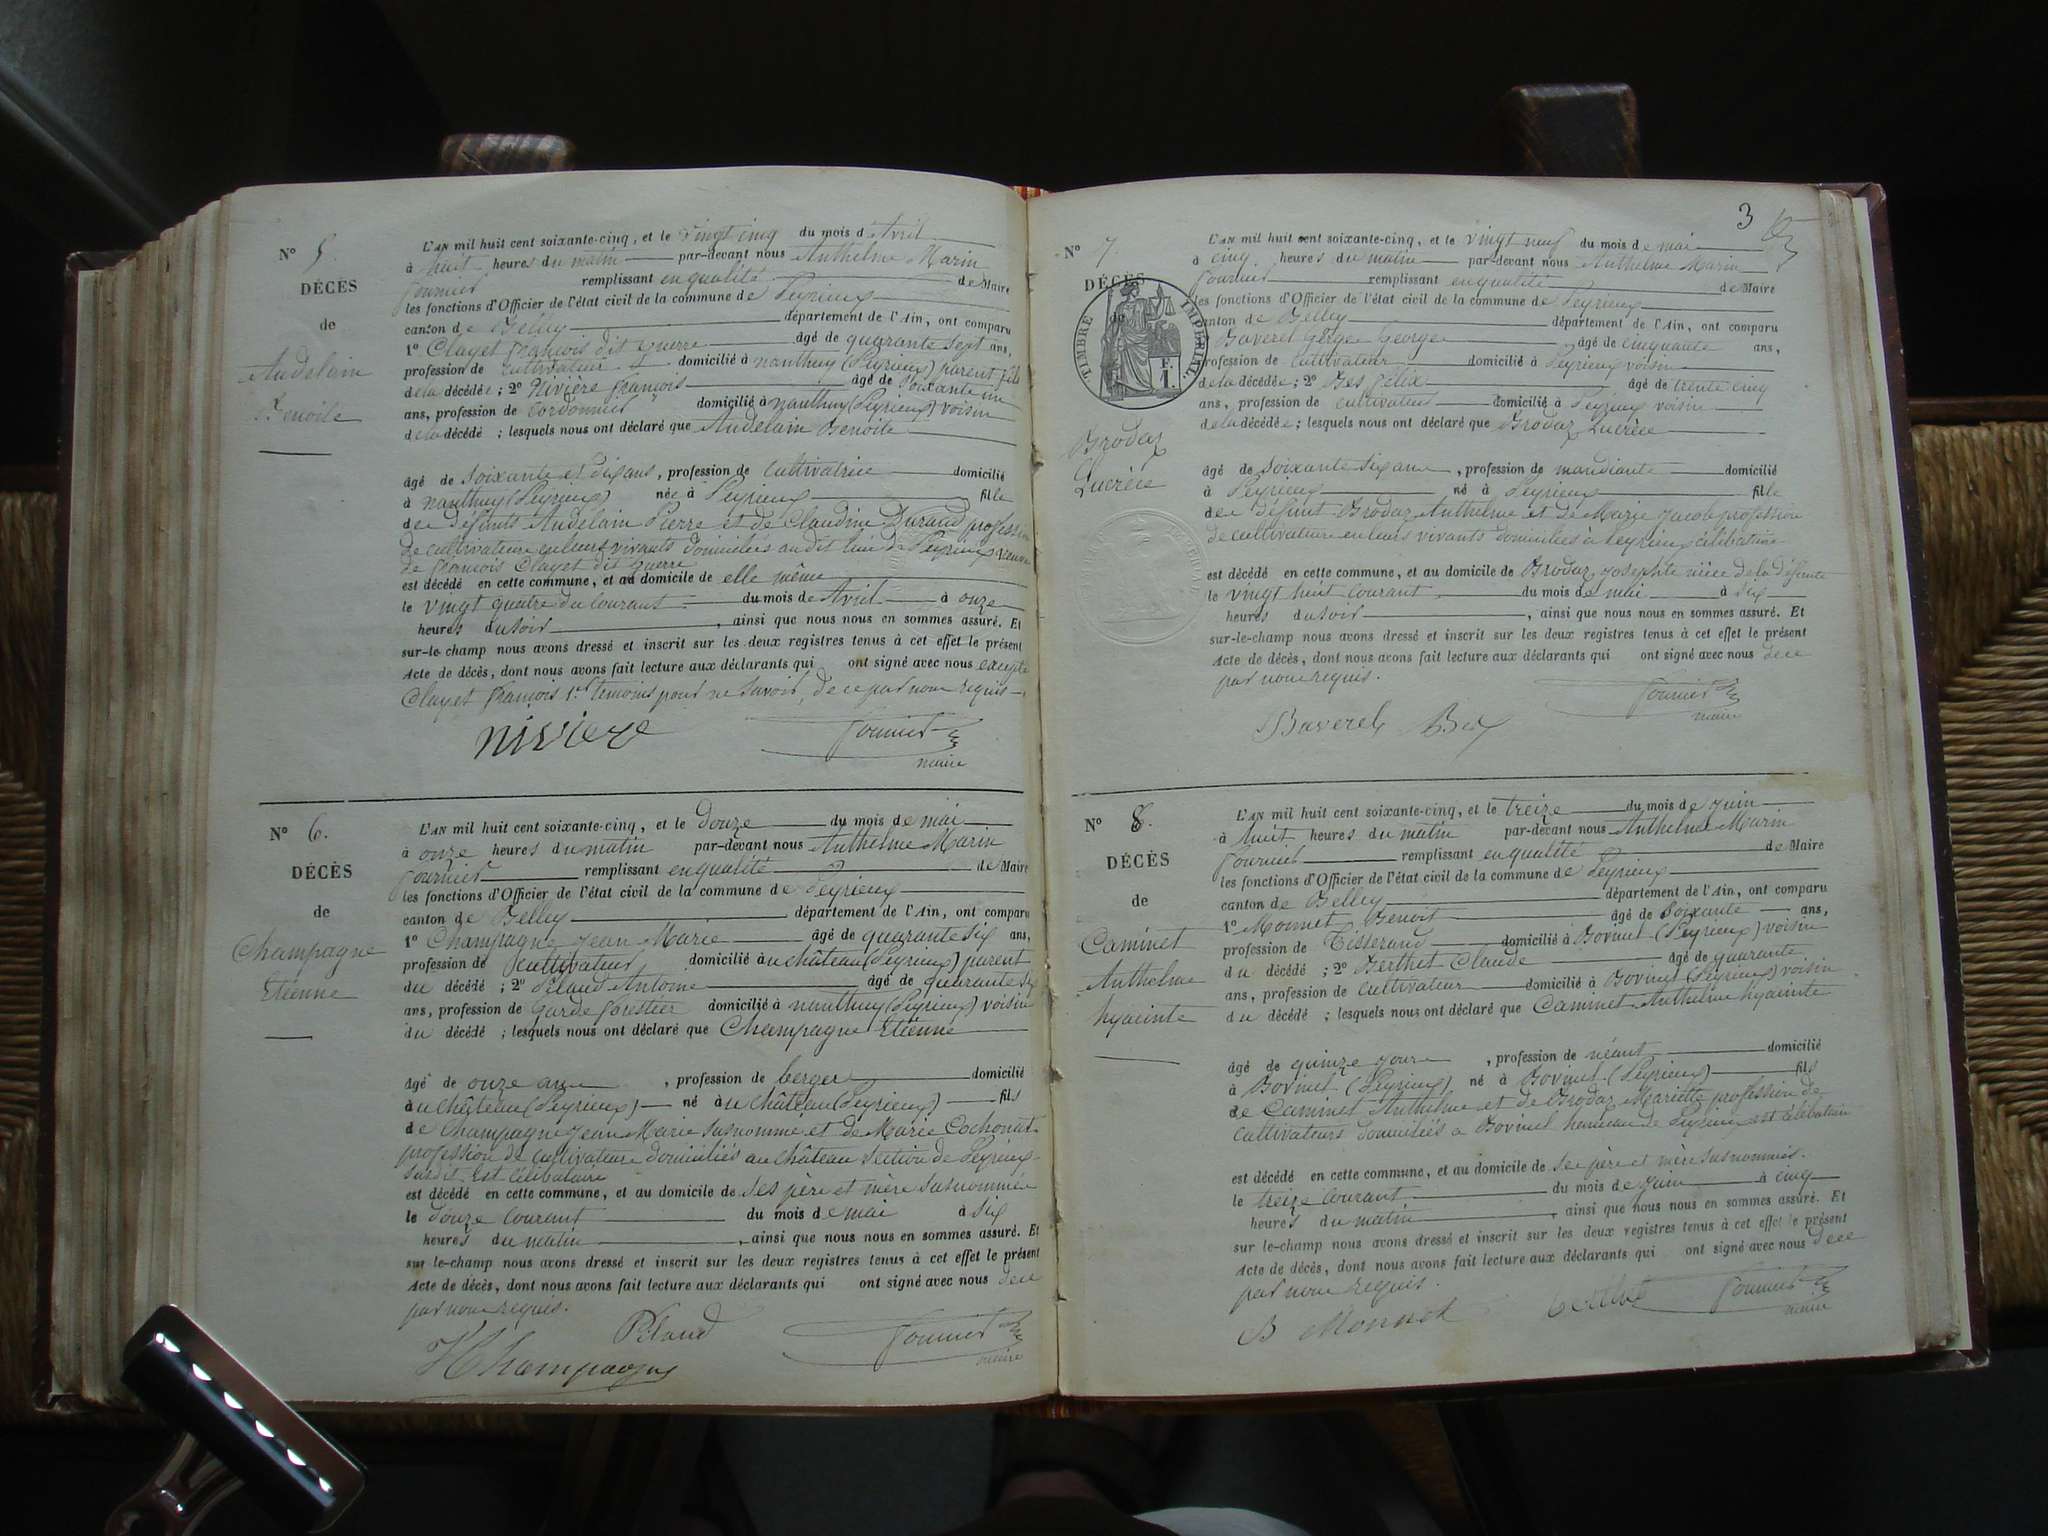 N° 5.
DÉCÈS
de
Audelain
Benoite
L'AN mil huit cent soixante-cinq, et le vingt cinq du mois d'Avril
à huit heures du matin par-devant nous Anthelme Marin
fournier remplissant en qualité de Maire
les fonctions d'Officier de l'état civil de la commune de Peyrieux
canton de Belley département de l'Ain, ont comparu
1° Clayet françois dit guerre âgé de quarante sept ans,
profession de cultivateur domicilié à nanthuy (Peyrieux) parent fils
de la décédée ; 2° Nivière françois âgé de Soixante un
ans, profession de Cordonnier domicilié à nanthuy (Peyrieux) voisin
de la décédé ; lesquels nous ont déclaré que Audelain Benoite
âgé de soixante et dix ans, profession de Cultivatrice domicilié
à nanthuy (Peyrieux) née à Peyrieux fille
de défunts Audelain Pierre et de Claudine Durand profession
de cultivateurs en leurs vivants domiciliés au dit lieu de Peyrieux veuve
de françois Clayet dit guerre
est décédé en cette commune, et au domicile de elle même
le vingt quatre du courant du mois de Avril à onze
heures du soir, ainsi que nous nous en sommes assuré. Et
sur-le-champ nous avons dressé et inscrit sur les deux registres tenus à cet effet le présent
Acte de décès, dont nous avons fait lecture aux déclarants qui ont signé avec nous excepté
Clayet françois 1er temoins pour ne savoir, de ce par nous requis
nivière fournier
maire
N° 6.
DÉCÈS
de
Champagne
Etienne
L'AN mil huit cent soixante-cinq, et le douze du mois de mai
à onze heures du matin par-devant nous Anthelme Marin
fournier remplissant en qualité de Maire
les fonctions d'Officier de l'état civil de la commune de Peyrieux
canton de Belley département de l'Ain, ont comparu
1° Champagne Jean Marie âgé de quarante six ans,
profession de cultivateur domicilié au château (Peyrieux) parent
du décédé ; 2° Pilaud Antoine âgé de quarante six
ans, profession de Garde forestier domicilié à nanthuy (Peyrieux) voisin
du décédé ; lesquels nous ont déclaré que Champagne Etienne
âgé de onze ans, profession de berger domicilié
au château (Peyrieux) né au château (Peyrieux) fils
de Champagne Jean Marie susnommé et de Marie Cochonat
profession de cultivateurs domiciliés au château section de Peyrieux
susdit est célibataire
est décédé en cette commune, et au domicile de ses père et mère susnommés
le douze courant du mois de mai à six
heures du matin, ainsi que nous nous en sommes assuré. Et
sur-le-champ nous avons dressé et inscrit sur les deux registres tenus à cet effet le présent
Acte de décès, dont nous avons fait lecture aux déclarants qui ont signé avec nous de ce
par nous requis.
Champagne Pilaud fournier
maire
3
N° 7.
DÉCÈS
de
TIMBRE IMPERIAL
F. 1.
Brodaz
Lucrèce
L'AN mil huit cent soixante-cinq, et le vingt neuf du mois de mai
à cinq heures du matin par-devant nous Anthelme Marin
fournier remplissant en qualité de Maire
les fonctions d'Officier de l'état civil de la commune de Peyrieux
canton de Belley département de l'Ain, ont comparu
Baverel George âgé de cinquante ans,
profession de cultivateur domicilié à Peyrieux voisin
de la décédée ; 2° Bes félix âgé de trente cinq
ans, profession de cultivateur domicilié à Peyrieux voisin
de la décédée ; lesquels nous ont déclaré que Brodaz Lucrèce
âgé de soixante six ans, profession de mandiante domicilié
à Peyrieux né à Peyrieux fille
de défunt Brodaz Anthelme et de Marie Jacob profession
de cultivateurs en leurs vivants domiciliés à Peyrieux célibataire
est décédé en cette commune, et au domicile de Brodaz Josephte nièce de la défunte
le vingt huit courant du mois de mai à six
heures du soir, ainsi que nous nous en sommes assuré. Et
sur-le-champ nous avons dressé et inscrit sur les deux registres tenus à cet effet le présent
Acte de décès, dont nous avons fait lecture aux déclarants qui ont signé avec nous de ce
par nous requis.
Baverel fournier
maire
N° 8.
DÉCÈS
de
Caminet
Anthelme
hyacinte
L'AN mil huit cent soixante-cinq, et le treize du mois de juin
à huit heures du matin par-devant nous Anthelme Marin
fournier remplissant en qualité de Maire
les fonctions d'Officier de l'état civil de la commune de Peyrieux
canton de Belley département de l'Ain, ont comparu
1° Monnet Benoit âgé de Soixante ans,
profession de Tisserand domicilié à Bovinel (Peyrieux) voisin
du décédé ; 2° Berthet Claude âgé de quarante
ans, profession de cultivateur domicilié à Bovinel (Peyrieux) voisin
du décédé ; lesquels nous ont déclaré que Caminet Anthelme hyacinte
âgé de quinze jours, profession de néant domicilié
à Bovinel (Peyrieux) né à Bovinel (Peyrieux) fils
de Caminet Anthelme et de Brodaz Mariette profession de
cultivateurs domiciliés a Bovinel hameau de Peyrieux est célibataire
est décédé en cette commune, et au domicile de ses père et mère susnommés.
le treize courant du mois de juin à cinq
heures du matin, ainsi que nous nous en sommes assuré. Et
sur le-champ nous avons dressé et inscrit sur les deux registres tenus à cet effet le présent
Acte de décès, dont nous avons fait lecture aux déclarants qui ont signé avec nous de ce
par nous requis.
B Monnet berthet fournier
maire